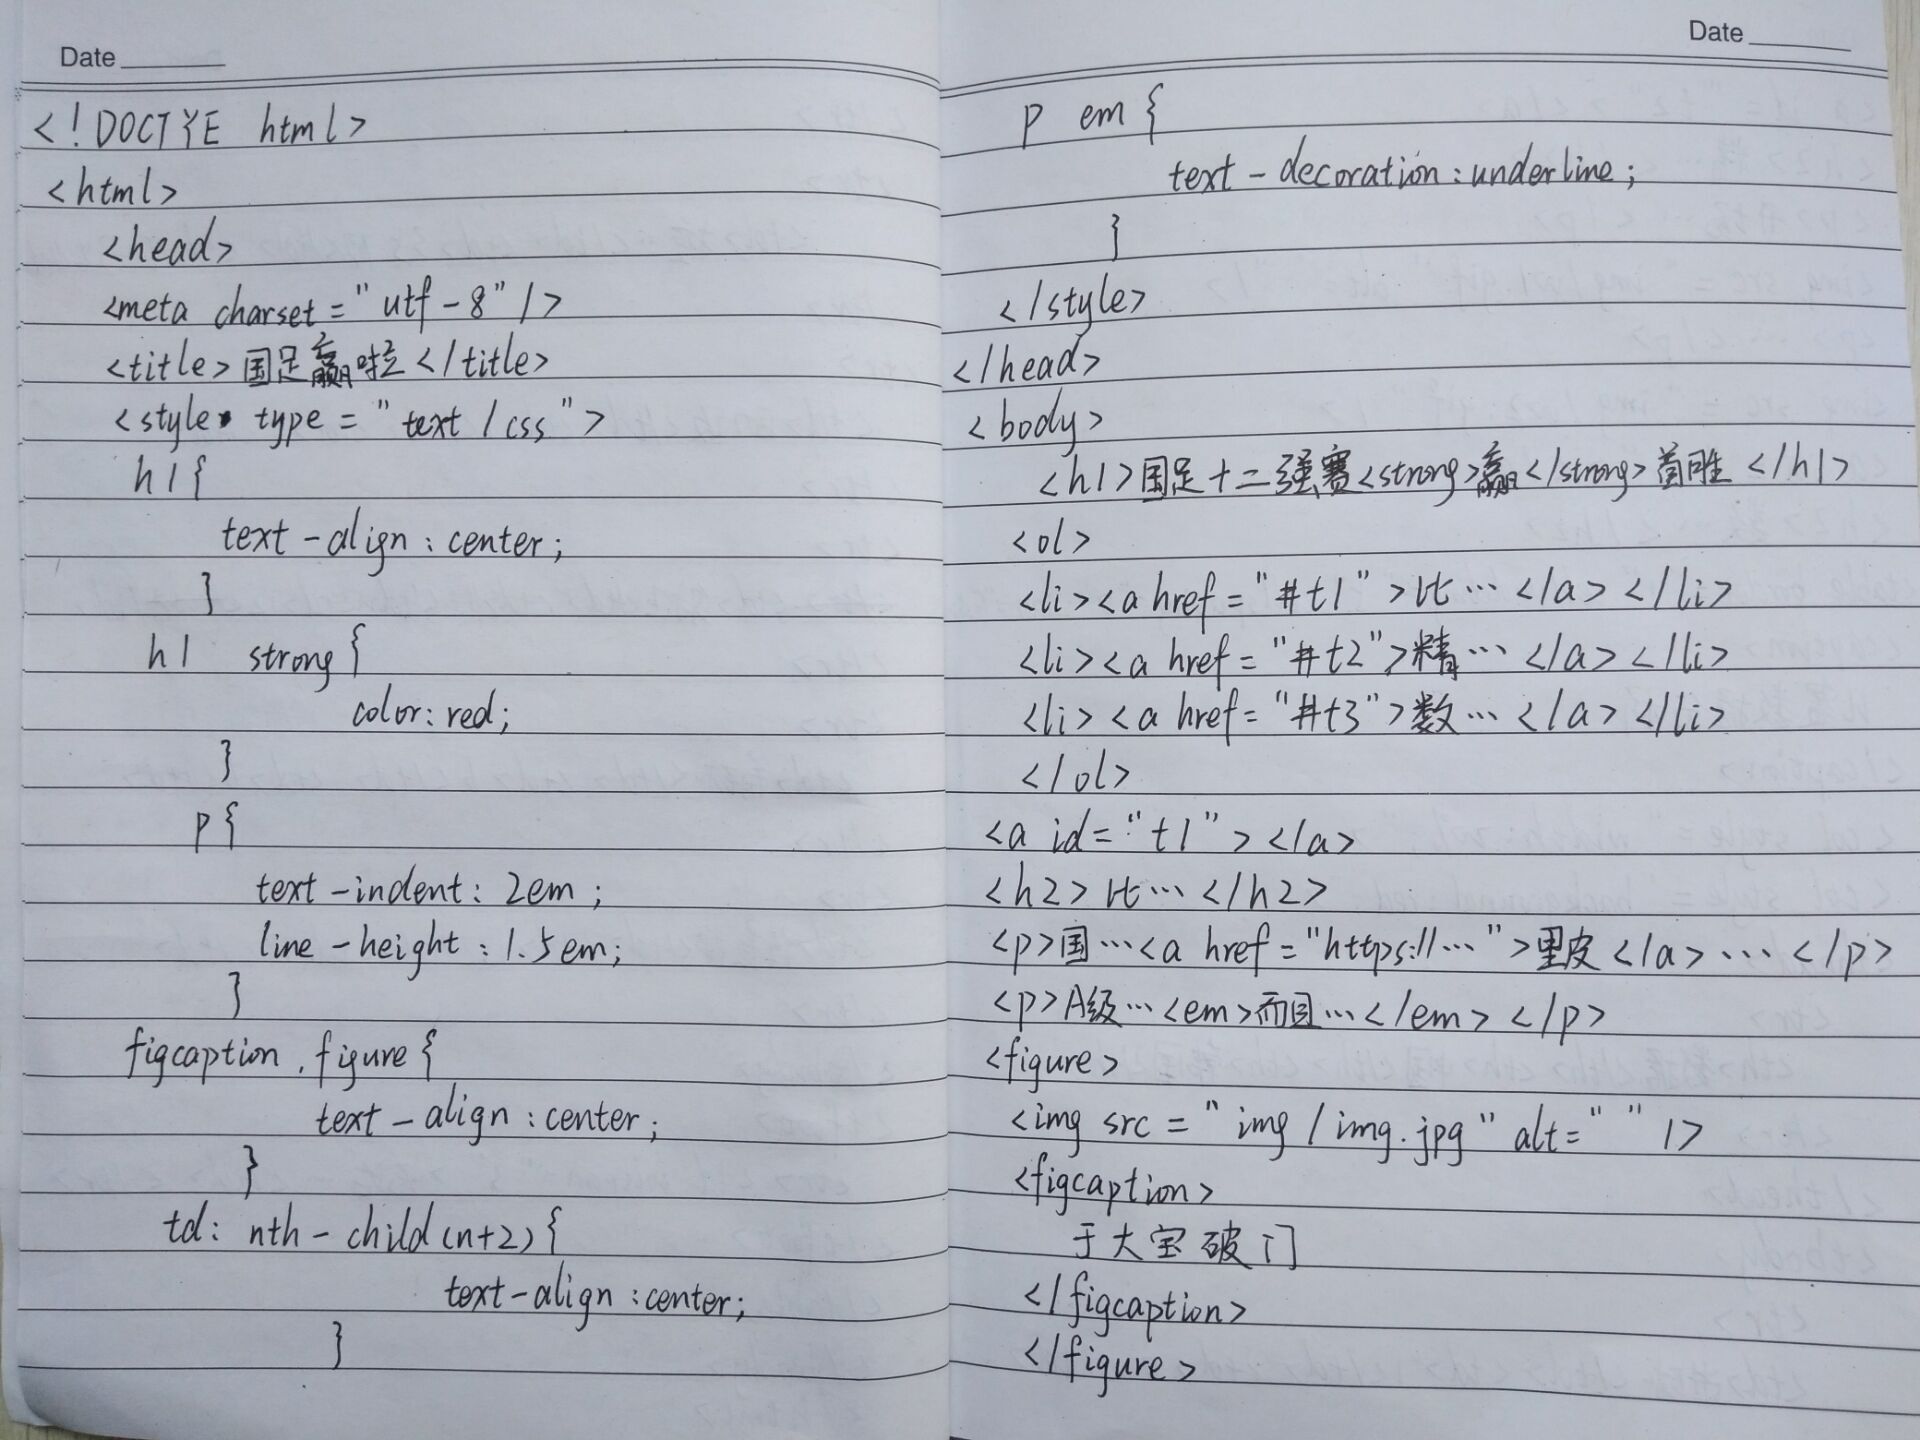 Date
<!DOCTYE html>
<html>
<head>
<meta charset="utf-8"/>
<title>国足赢啦</title>
<style type="text/css">
h1{
text-align:center;
}
h1 strong{
color:red;
}
p{
text-indent:2em;
line-height:1.5em;
}
figcaption,figure{
text-align:center;
}
td:nth-child(n+2){
text-align:center;
}
Date
p em{
text-decoration:underline;
}
</style>
</head>
<body>
<h1>国足十二强赛<strong>赢</strong>首胜</h1>
<ol>
<li><a href="#t1">比…</a></li>
<li><a href="#t2">精…</a></li>
<li><a href="#t3">数…</a></li>
</ol>
<a id="t1"></a>
<h2>比…</h2>
<p>国…<a href="https://…">里皮</a>…</p>
<p>A级…<em>而且…</em></p>
<figure>
<img src="img/img.jpg" alt=" "/>
<figcaption>
于大宝破门
</figcaption>
</figure>